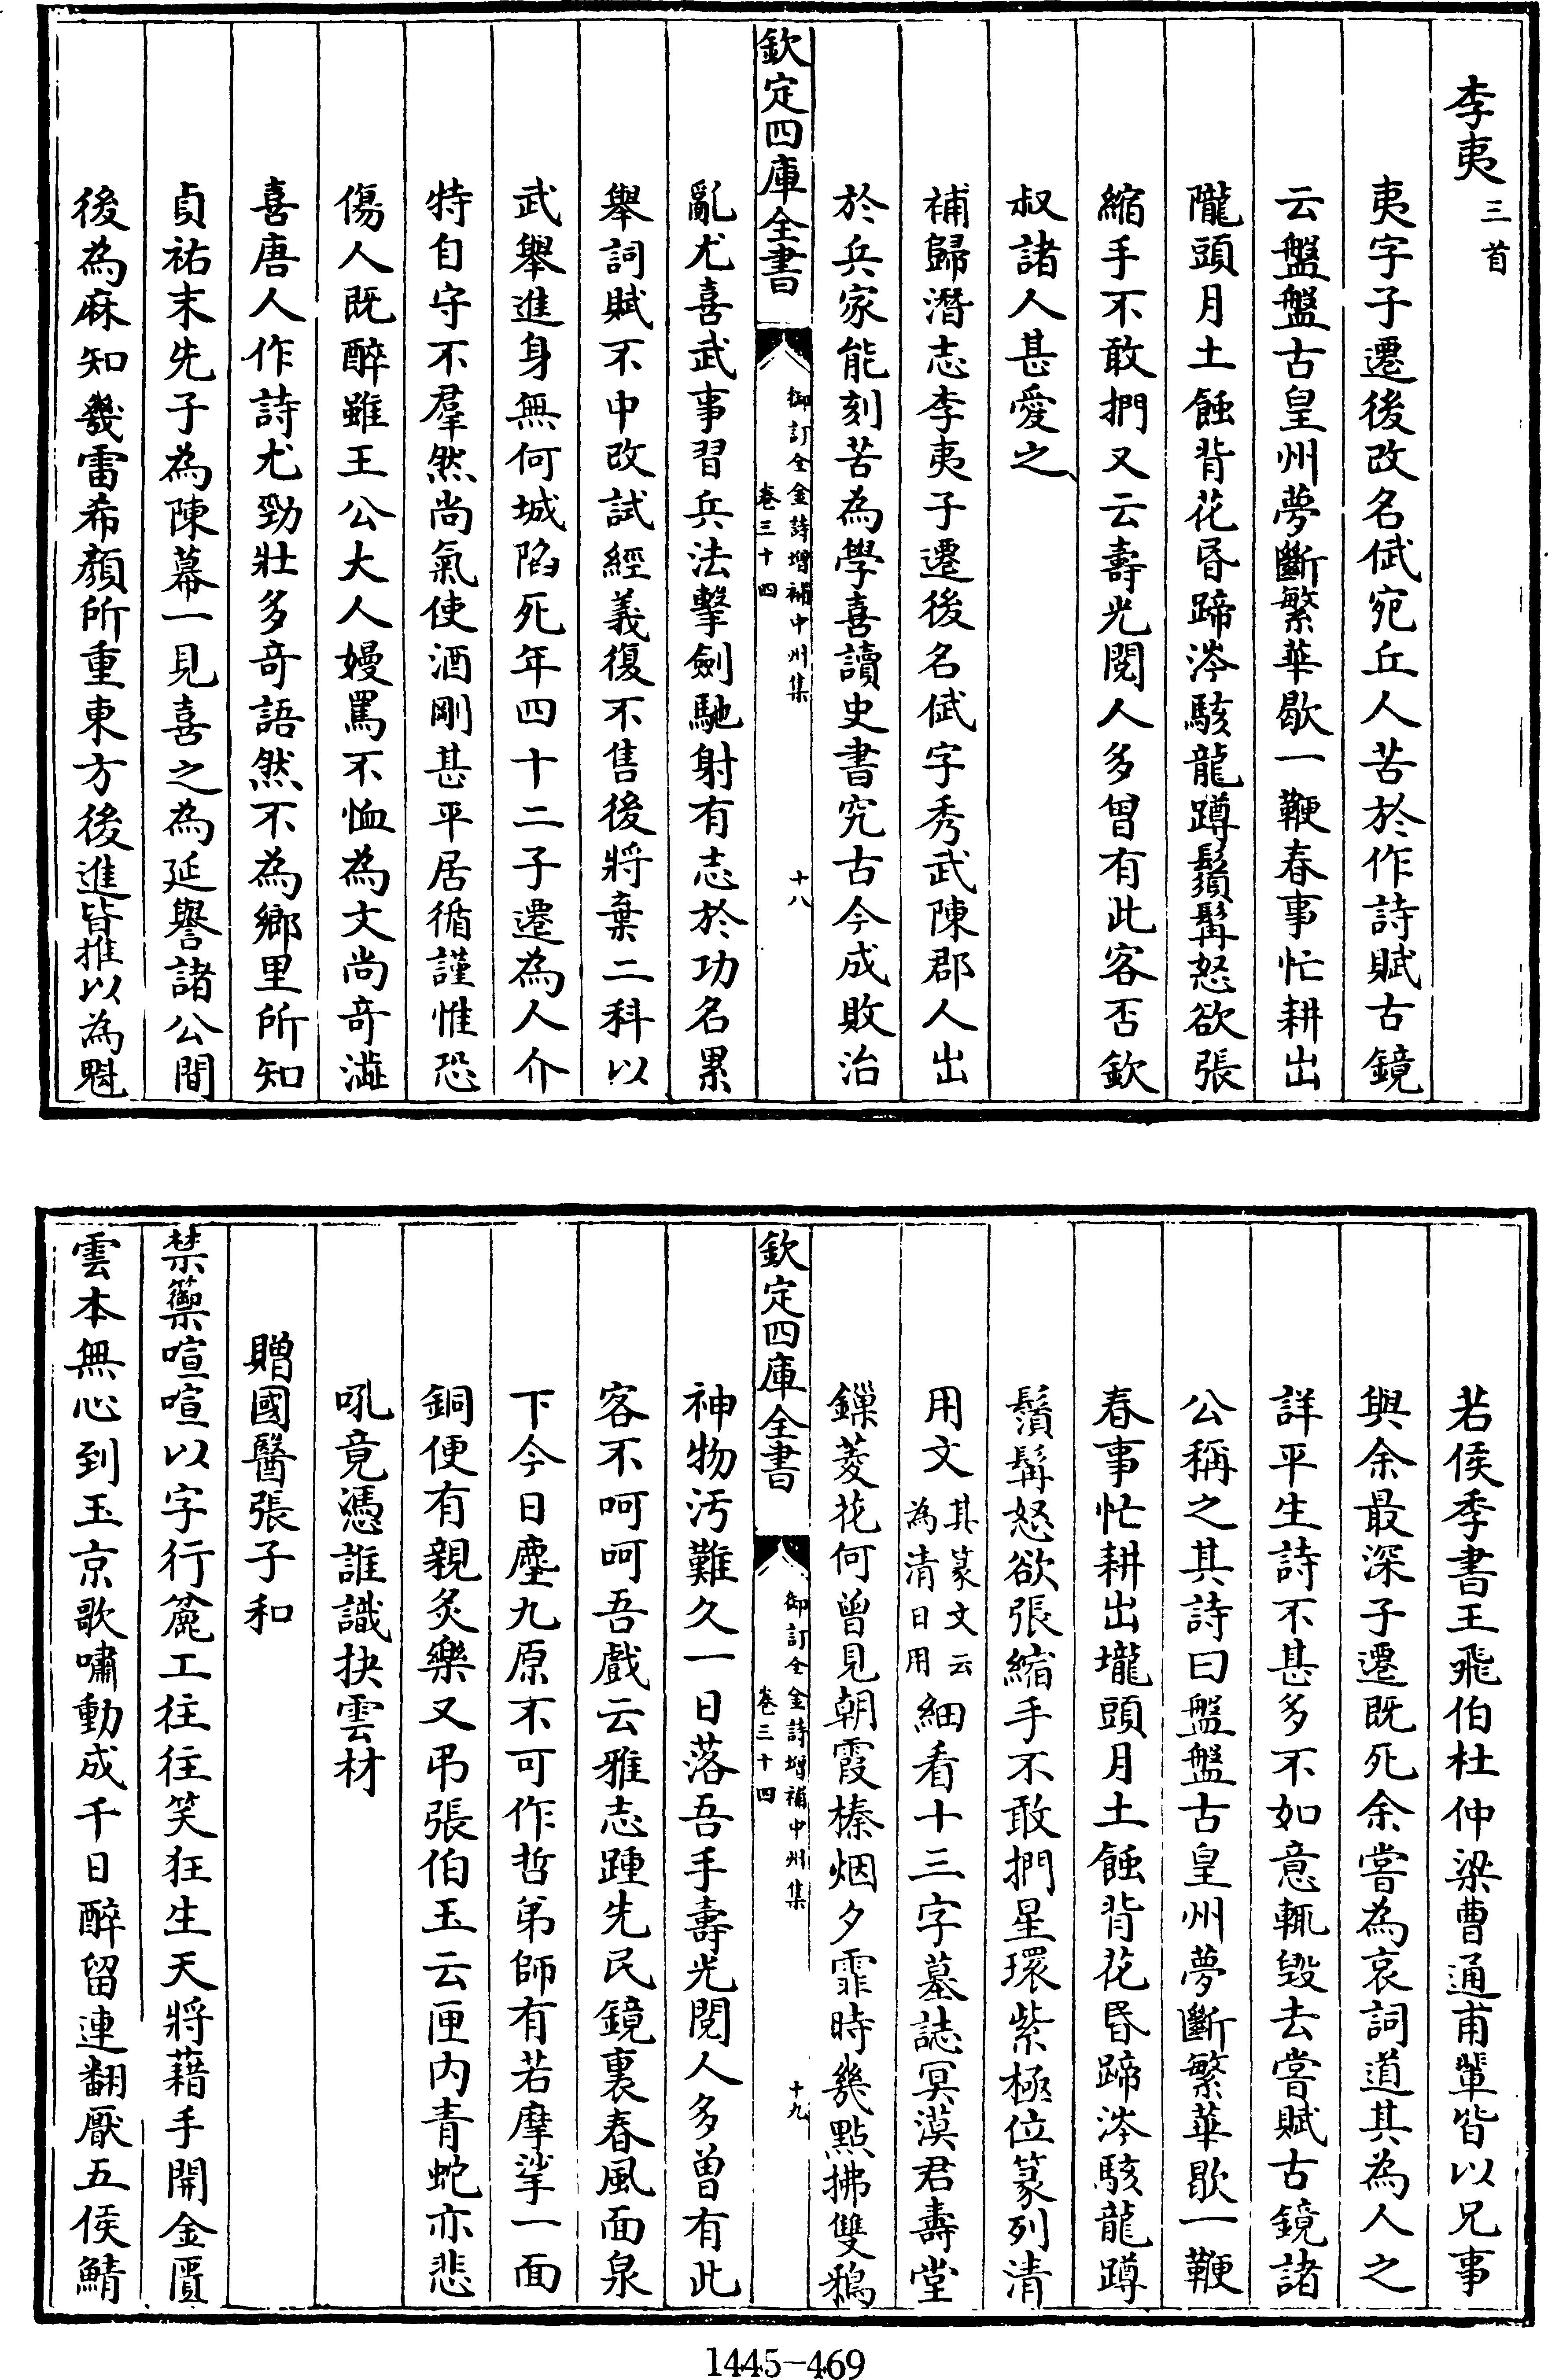 李夷三首
夷字子遷後改名倵宛丘人苦於作詩賦古鏡
云盤盤古皇州夢斷繁華歇一鞭春事忙耕出
隴頭月土蝕背花昏蹄涔駭龍蹲鬚髯怒欲張
縮手不敢捫又云壽光閱人多曾有此客否欽
叔諸人甚愛之
補歸潛志李夷子遷後名倵字秀武陳郡人出
於兵家能刻苦為學喜讀史書究古今成敗治
欽定四庫全書
御訂全金詩增補中州集
卷三十四
十八
亂尤喜武事習兵法擊劍馳射有志於功名累
舉詞賦不中改試經義復不售後將棄二科以
武舉進身無何城陷死年四十二子遷為人介
特自守不羣然尚氣使酒剛甚平居循謹惟恐
傷人既醉雖王公大人嫚罵不恤為文尚竒澁
喜唐人作詩尤勁壯多竒語然不為鄉里所知
貞祐末先子為陳幕一見喜之為延譽諸公間
後為麻知幾雷希顏所重東方後進皆推以為魁
若侯季書王飛伯杜仲梁曹通甫輩皆以兄事
與余最深子遷既死余嘗為哀詞道其為人之
詳平生詩不甚多不如意輒毀去嘗賦古鏡諸
公稱之其詩曰盤盤古皇州夢斷繁華歇一鞭
春事忙耕出壠頭月土蝕背花昏蹄涔駭龍蹲
鬚髯怒欲張縮手不敢捫星環紫極位篆列清
用文其篆文云為清日用細看十三字墓誌冥漠君壽堂
鏁菱花何曾見朝霞榛烟夕霏時幾點拂雙鵶
欽定四庫全書
御訂全金詩增補中州集
卷三十四
十九
神物汚難久一日落吾手壽光閱人多曾有此
客不呵呵吾戲云雅志踵先民鏡裏春風面泉
下今日塵九原不可作哲弟師有若摩挲一面
銅便有親炙樂又弔張伯玉云匣内青蛇亦悲
吼竟憑誰識抉雲材
贈國醫張子和
禁籞喧喧以字行簏工往往笑狂生天將藉手開金匱
雲本無心到玉京歌嘯動成千日醉留連翻厭五侯鯖
1445-469